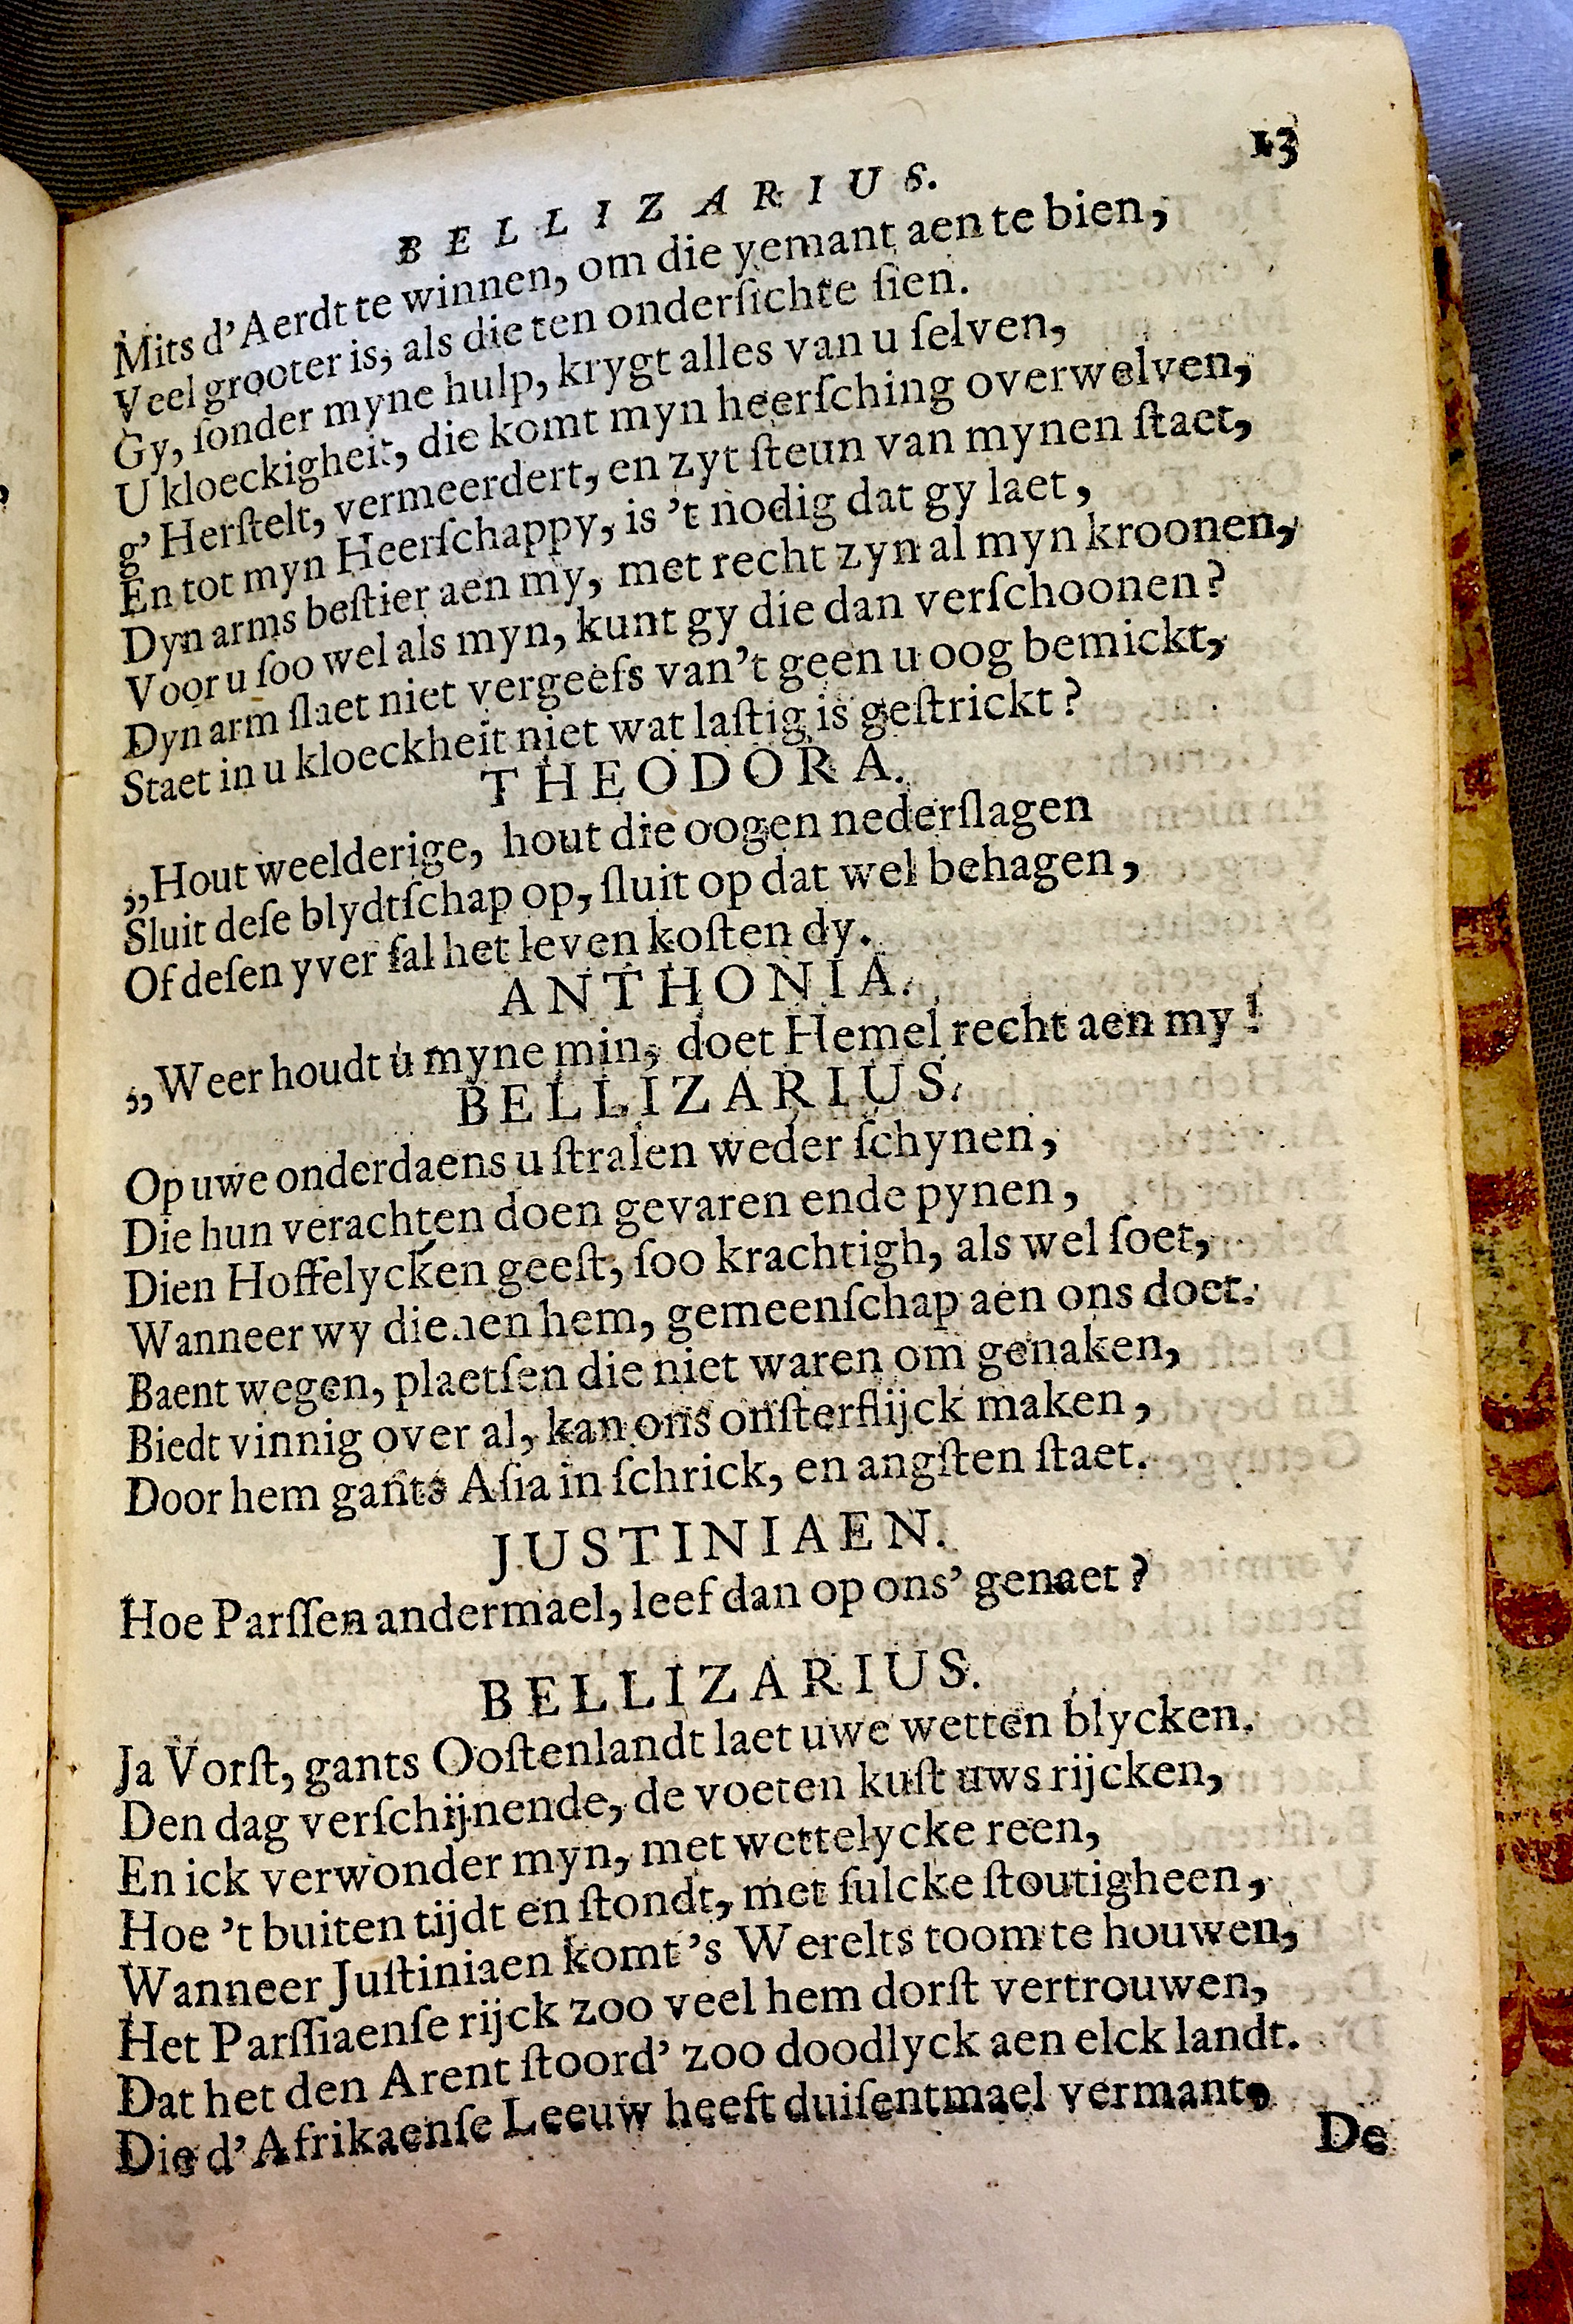 13
BELLIZARIUS.
Mits d'Aerdt te winnen, om die yemant aen te bien,
Veel grooter is, als die ten onderſichte ſien.
Gy, ſonder myne hulp, krygt alles van u ſelven,
U kloeckigheit, die komt myn heerſching overwelven,
g' Herſtelt, vermeerdert, en zyt ſteun van mynen ſtaet,
En tot myn Heerſchappy, is 't nodig dat gy laet,
Dyn arms beſtier aen my, met recht zyn al myn kroonen,
Voor u ſoo wel als myn, kunt gy die dan verſchoonen?
Dyn arm ſlaet niet vergeefs van't geen u oog bemickt,
Staet in u kloeckheit niet wat laſtig is geſtrickt?
THEODORA.
„Hout weelderige, hout die oogen nederſlagen
Sluit deſe blydtſchap op, ſluit op dat wel behagen,
Of deſen yver ſal het leven koſten dy.
ANTHONIA.
„Weerhoudt u myne min, doet Hemel recht aen my!
BELLIZARIUS.
Op uwe onderdaens u ſtralen weder ſchynen,
Die hun verachten doen gevaren ende pynen,
Dien Hoffelycken geeſt, ſoo krachtigh, als wel ſoet,
Wanneer wy dienen hem, gemeenſchap aen ons doet.
Baent wegen, plaetſen die niet waren om genaken,
Biedt vinnig over al, kan ons onſterflijck maken,
Door hem gants Aſia in ſchrick, en angſten ſtaet.
JUSTINIAEN.
Hoe Parſſen andermael, leef dan op ons' genaet?
BELLIZARIUS.
Ja Vorſt, gants Ooſtenlandt laet uwe wetten blycken.
Den dag verſchijnende, de voeten kuſt uws rijcken,
En ick verwonder myn, met wettelycke reen,
Hoe 't buiten tijdt en ſtondt, met ſulcke ſtoutigheen,
Wanneer Juſtiniaen komt 's Werelts toom te houwen,
Het Parſſiaenſe rijck zoo veel hem dorſt vertrouwen,
Dat het den Arent ſtoord' zoo doodlyck aen elck landt.
Die d'Afrikaenſe Leeuw heeft duiſentmael vermant,
De